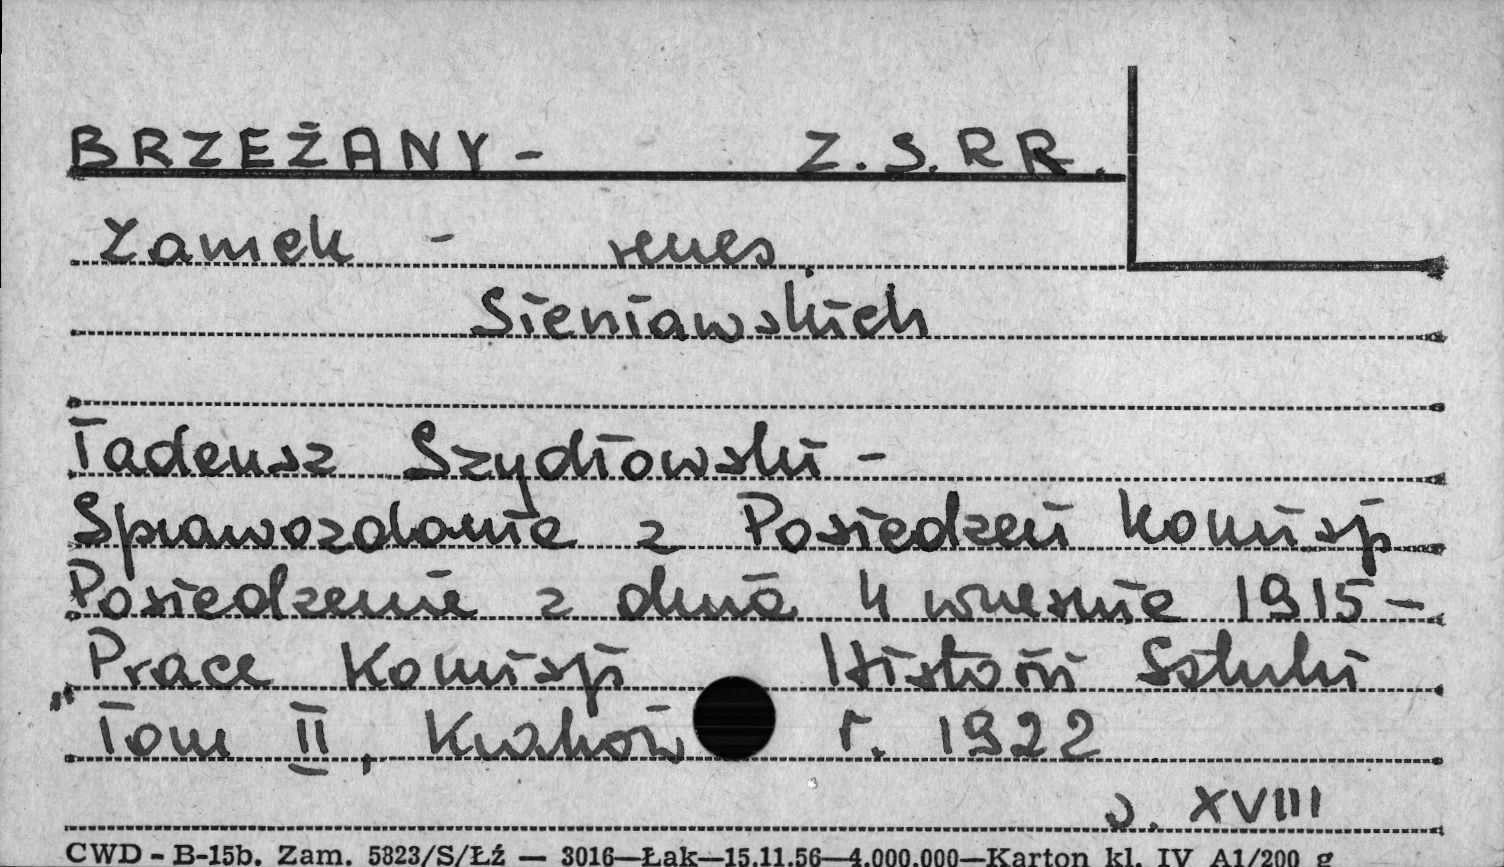 BRZEŻANY - Z.S.R.R.
Zamek - renes.
Sieniawskich
Tadeusz Szydłowski -
Sprawozdanie z Posiedzeń Komisji
Posiedzenie z dnia 4 wrześnie 1915 -
Prace Komisji Historii Sztuki
Tom II, Kraków r. 1922
s. XVIII
CWD - B-15b. Zam. 5823/S/Łź — 3016—Łak—15.11.56—4.000.000—Karton kl. IV A1/200 g